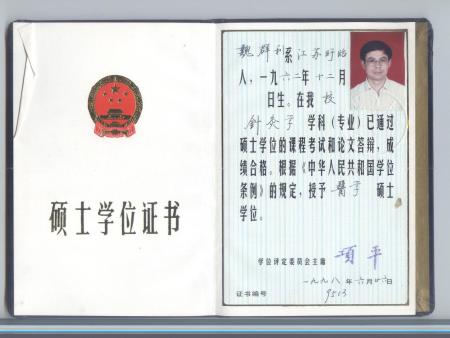 硕士学位证书
魏群利系江苏盱眙
人，一九六二年十二月
日生。在我校
针灸学 学科（专业）已通过
硕士学位的课程考试和论文答辩，成
绩合格。根据《中华人民共和国学位
条例》的规定，授予 醫学 硕士
学位。
学位评定委员会主席 项平
一九九八年六月廿六日
证书编号 9513